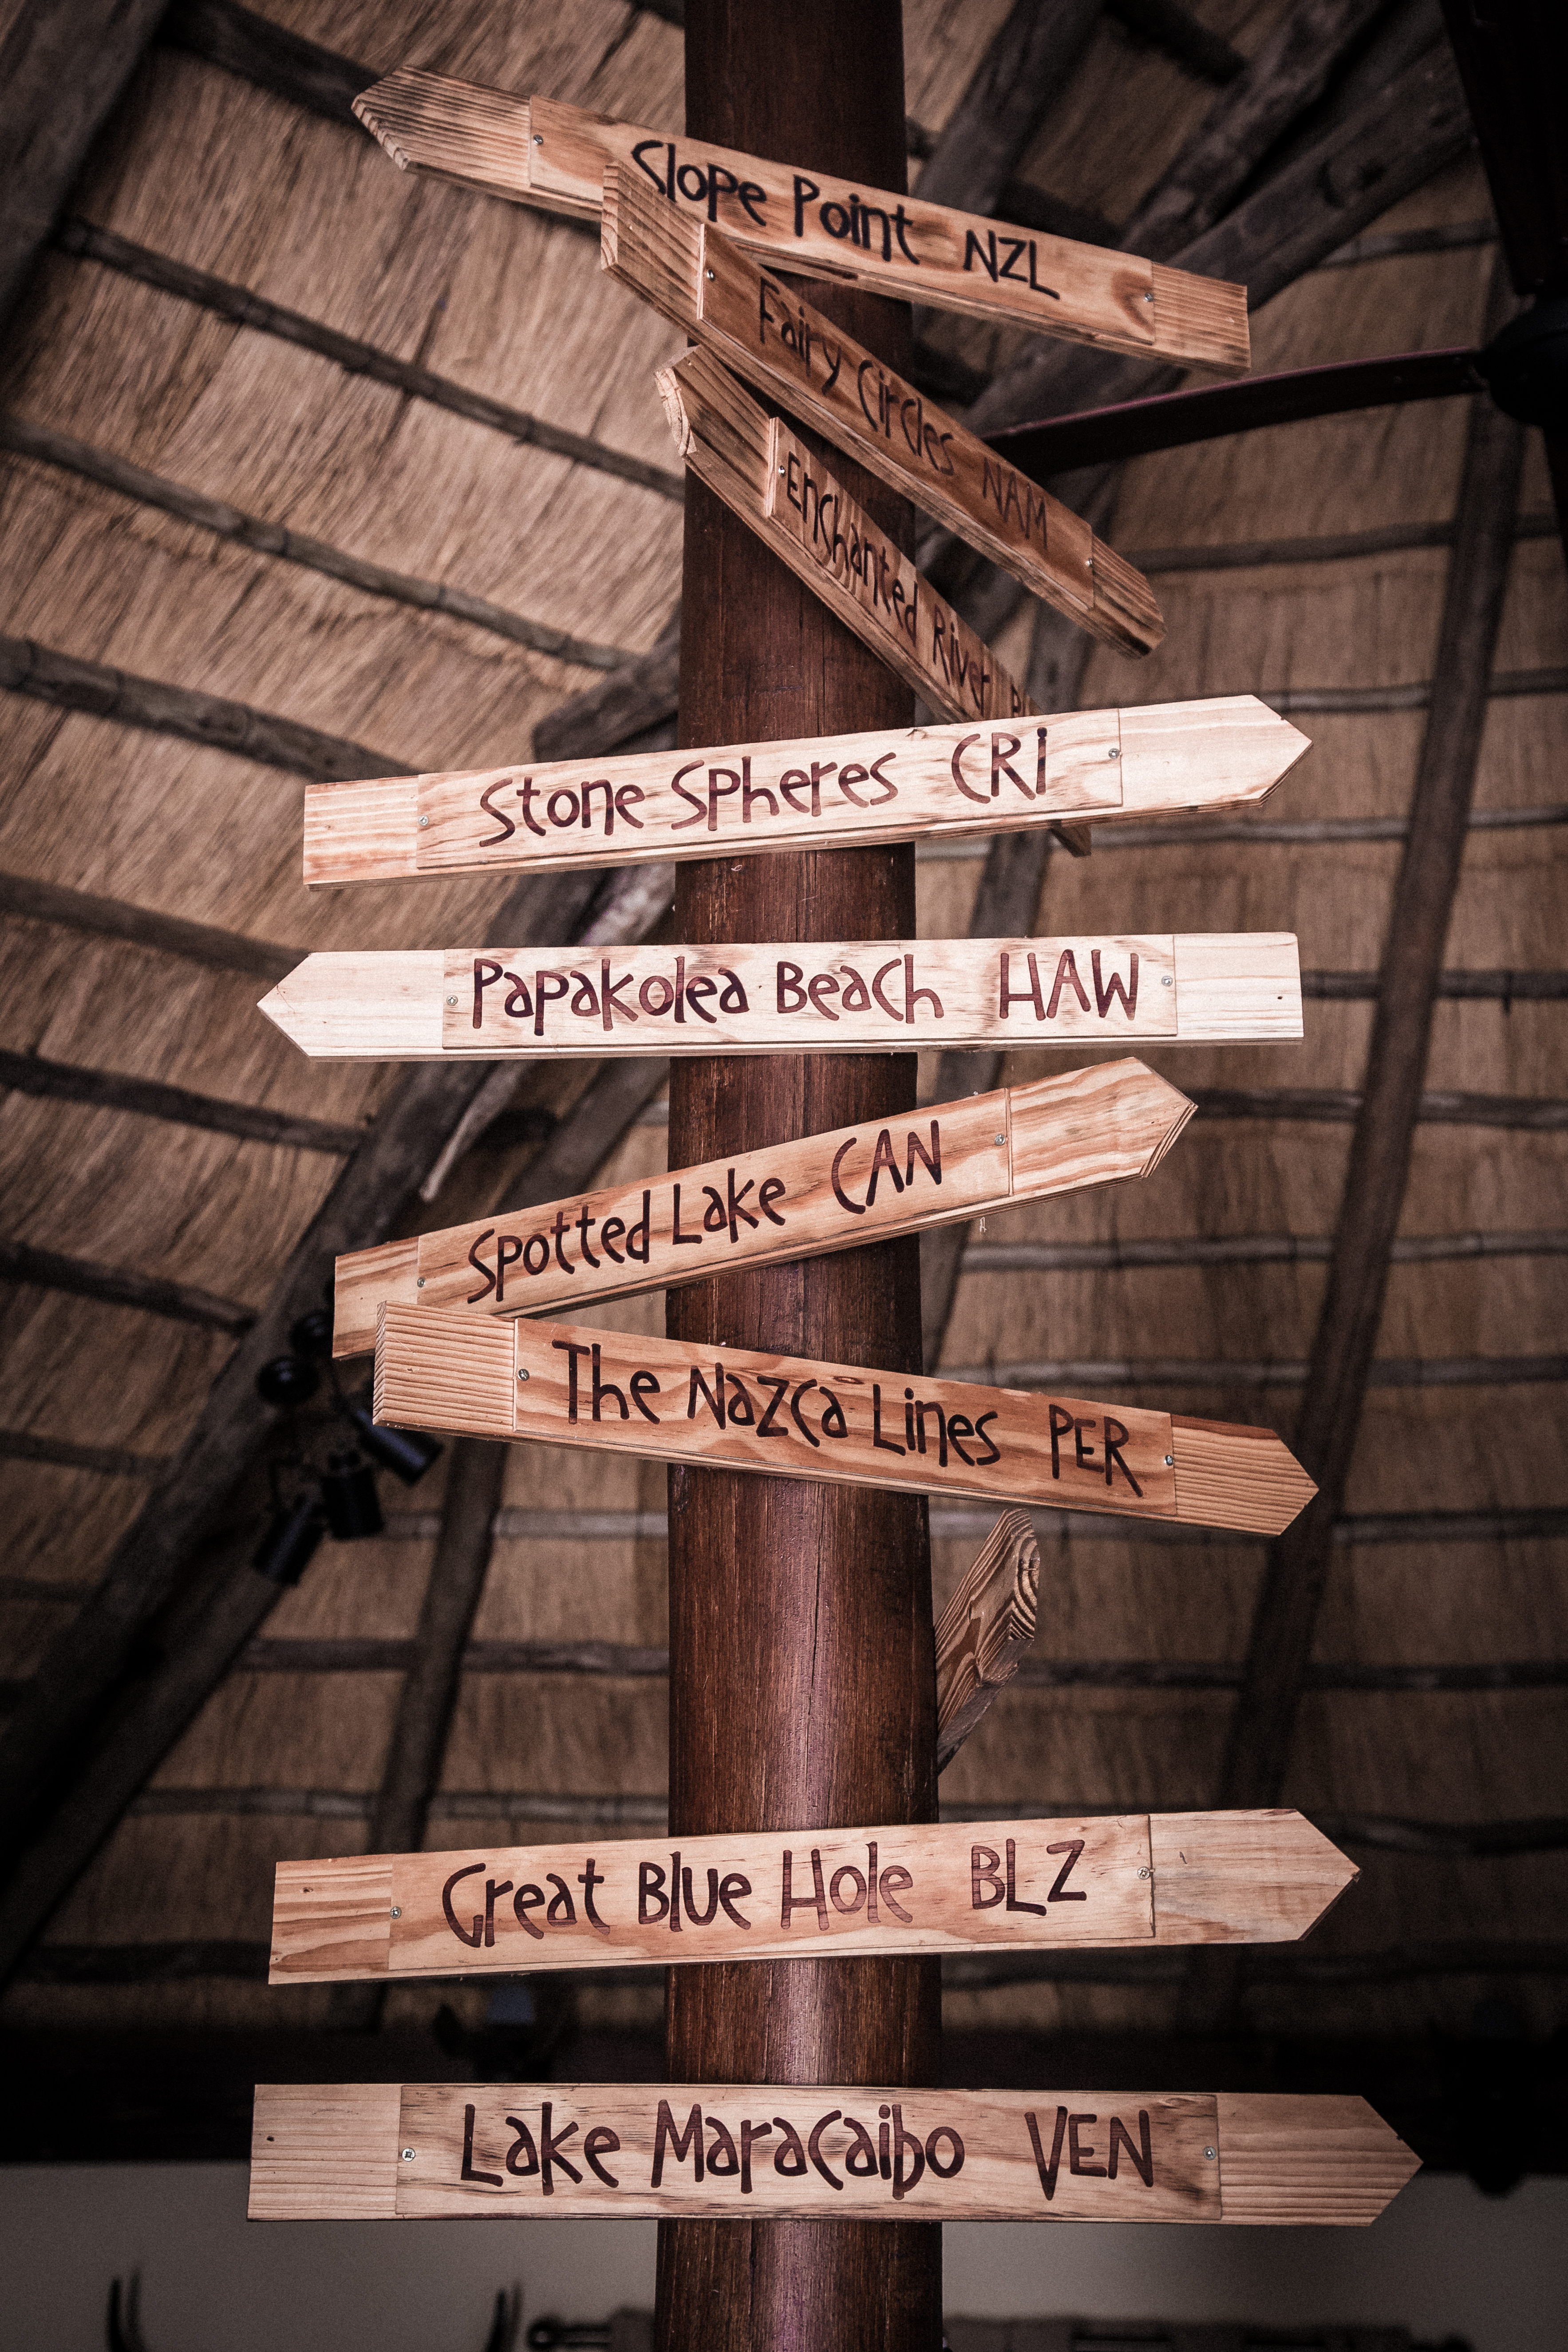 Slope Point NZL
Fairy Circles NAM
Enchanted River
Stone Spheres CRI
Papakolea Beach HAW
Spotted Lake CAN
The Nazca Lines PER
Great Blue Hole BLZ
Lake Maracaibo VEN